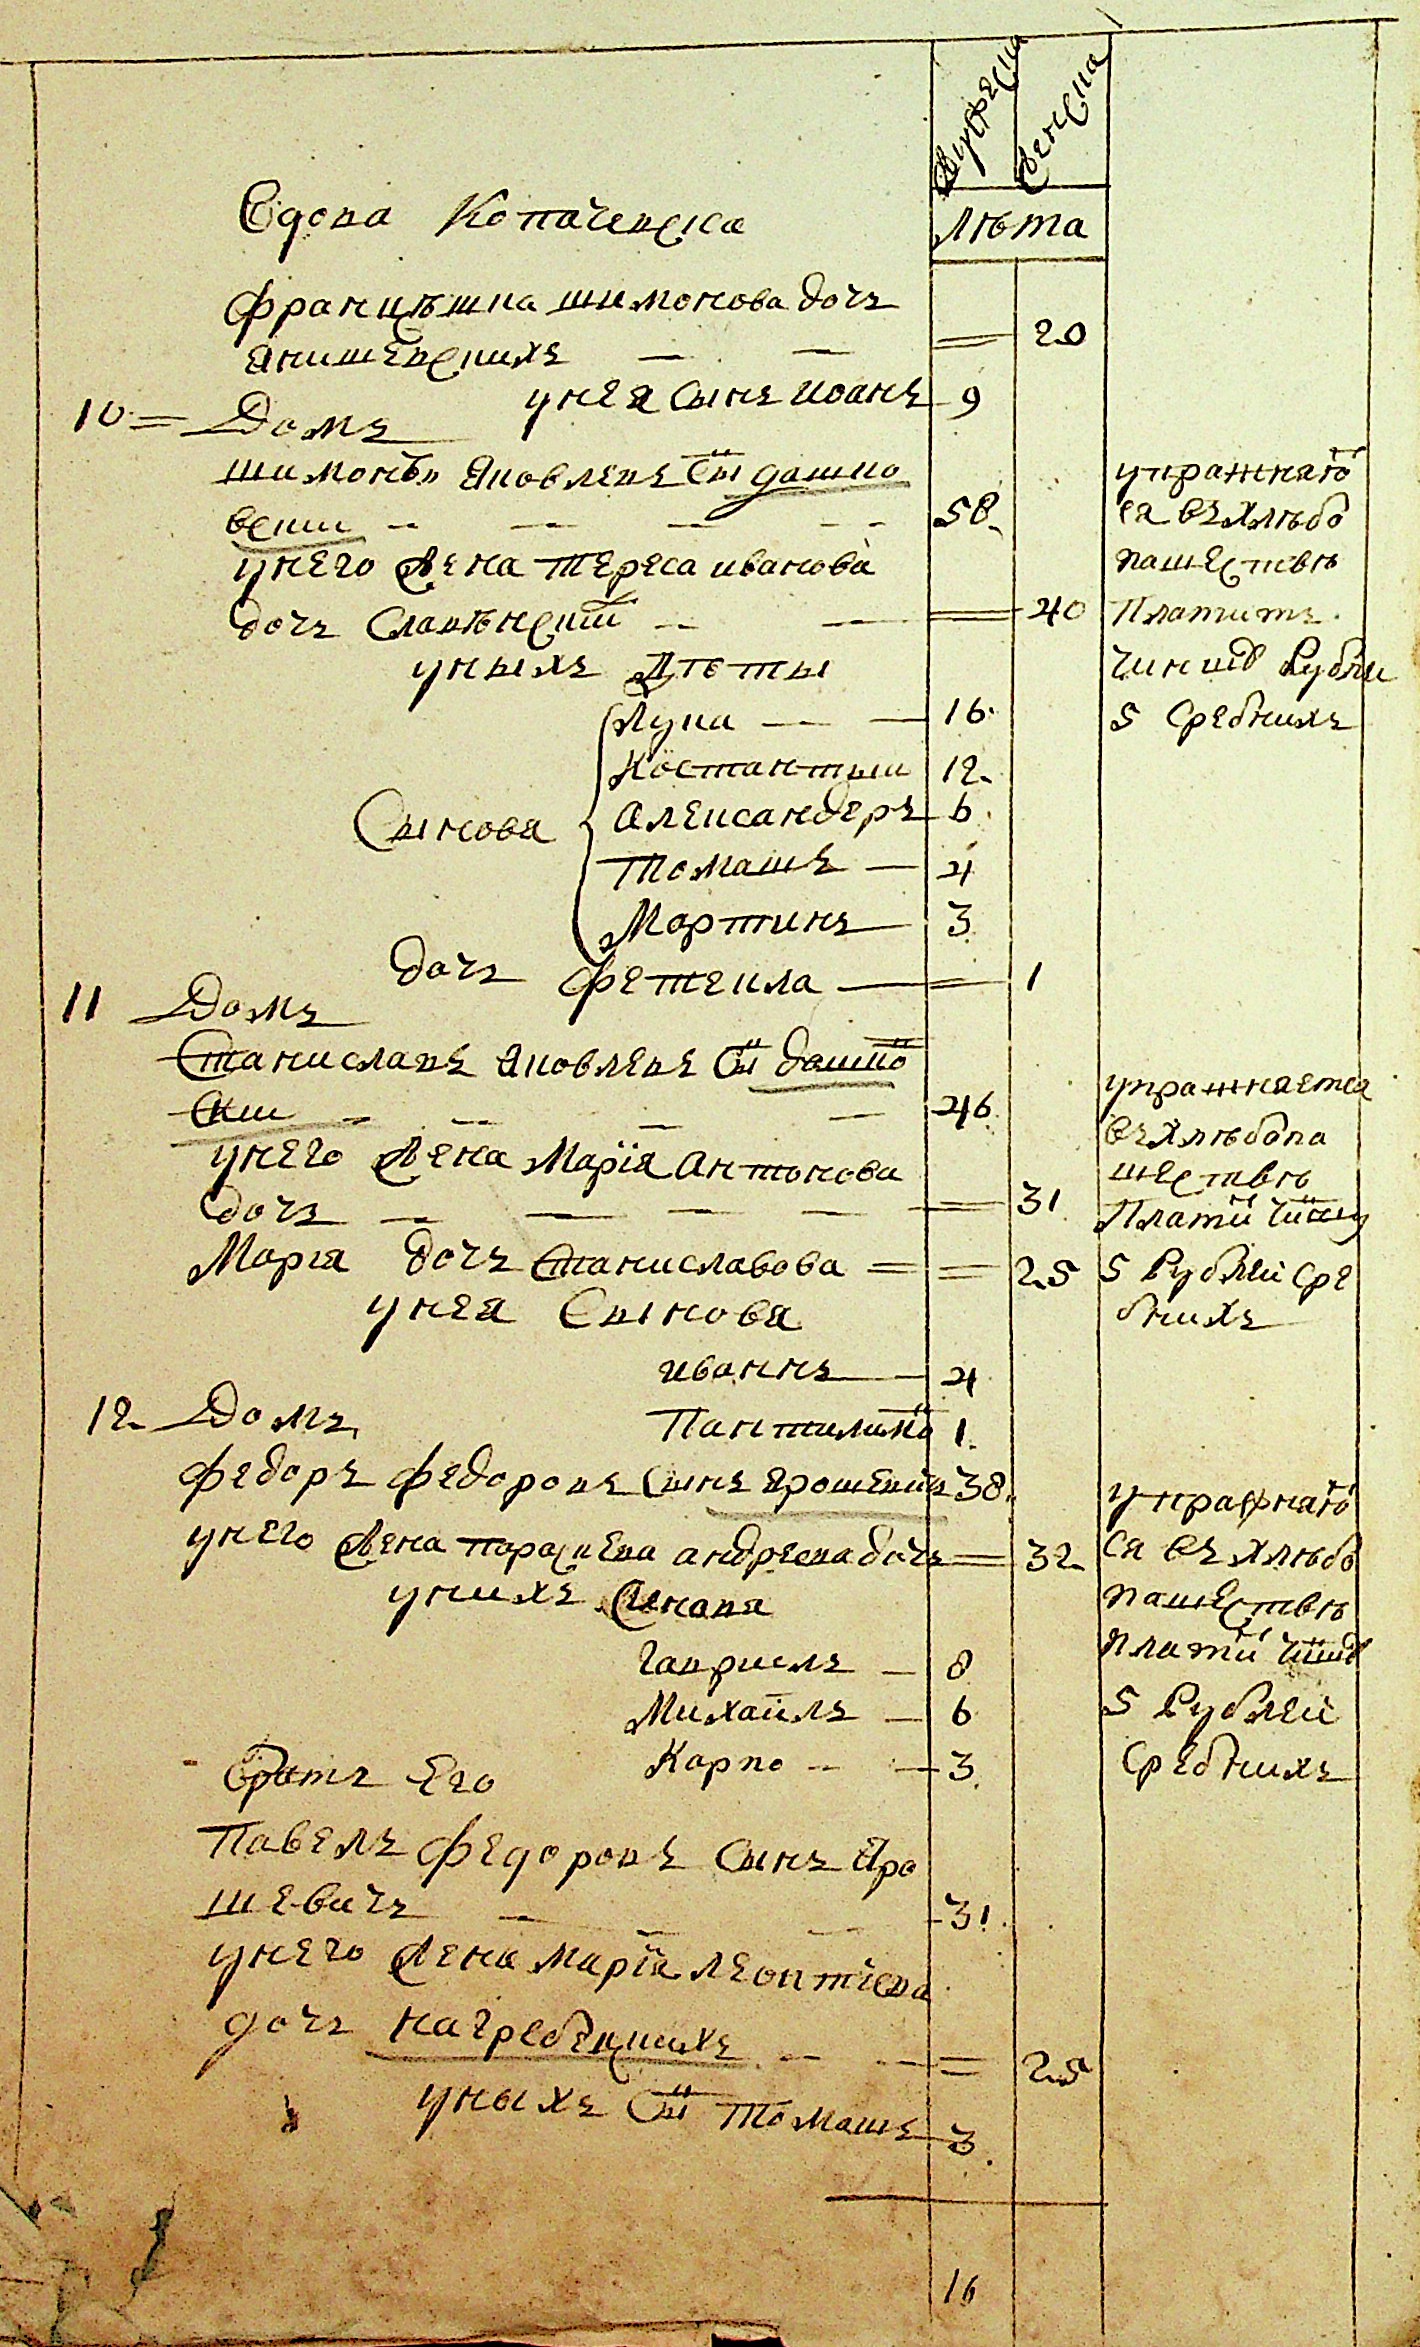 Мужеска Женска
лѣта
Вдова Копачевска
Францѣшка Шимонова дочъ
Янишевскихъ — — = 20
у нея сынъ Иоанъ 9
10 = Домъ
Шимонъ Яковлевъ сы Дашко
вски — — — — 58
у него жена Тереса Иванова
дочъ Славѣнски — — = 40
у ныхъ дѣты
Лука — — 16
Костантыи 12
Сынова Александеръ 6
Томашъ — 4
Мартинъ 3
дочъ Фетекла — = 1
упражнаю
ся въ хлѣбо
пашествѣ
Платитъ
чиншъ Рубли
5 Сребнихъ
11 Домъ
Станиславъ Яковлевъ сы Дашко
вски — — — — 46
у него жена Марія Антонова
дочъ — — — — = 31
Марія дочъ Станиславова = = 25
у нея Сынова
Иваннъ — 4
Пантилимо 1
упражняется
въ хлѣбопа
шествѣ
Плати чиншу
5 Рублеи Сре
бнихъ
12 Домъ
Федоръ Федоровъ сынъ Ярошевичъ 38
у него жена Параскева Андреева дочъ = 32
у нихъ Сынова
Гавриелъ — 8
Михаилъ — 6
Карпо — — 3
упражнаю
ся въ хлѣбо
пашествѣ
плати чиншъ
5 Рублеи
Сребнихъ
Братъ Его
Павелъ Федоровъ сынъ Яро
шевичъ — — — 31
у него жена Марія Леонтіева
дочъ Нагребецкихъ — — = 25
у ныхъ сы Томашъ 3
16